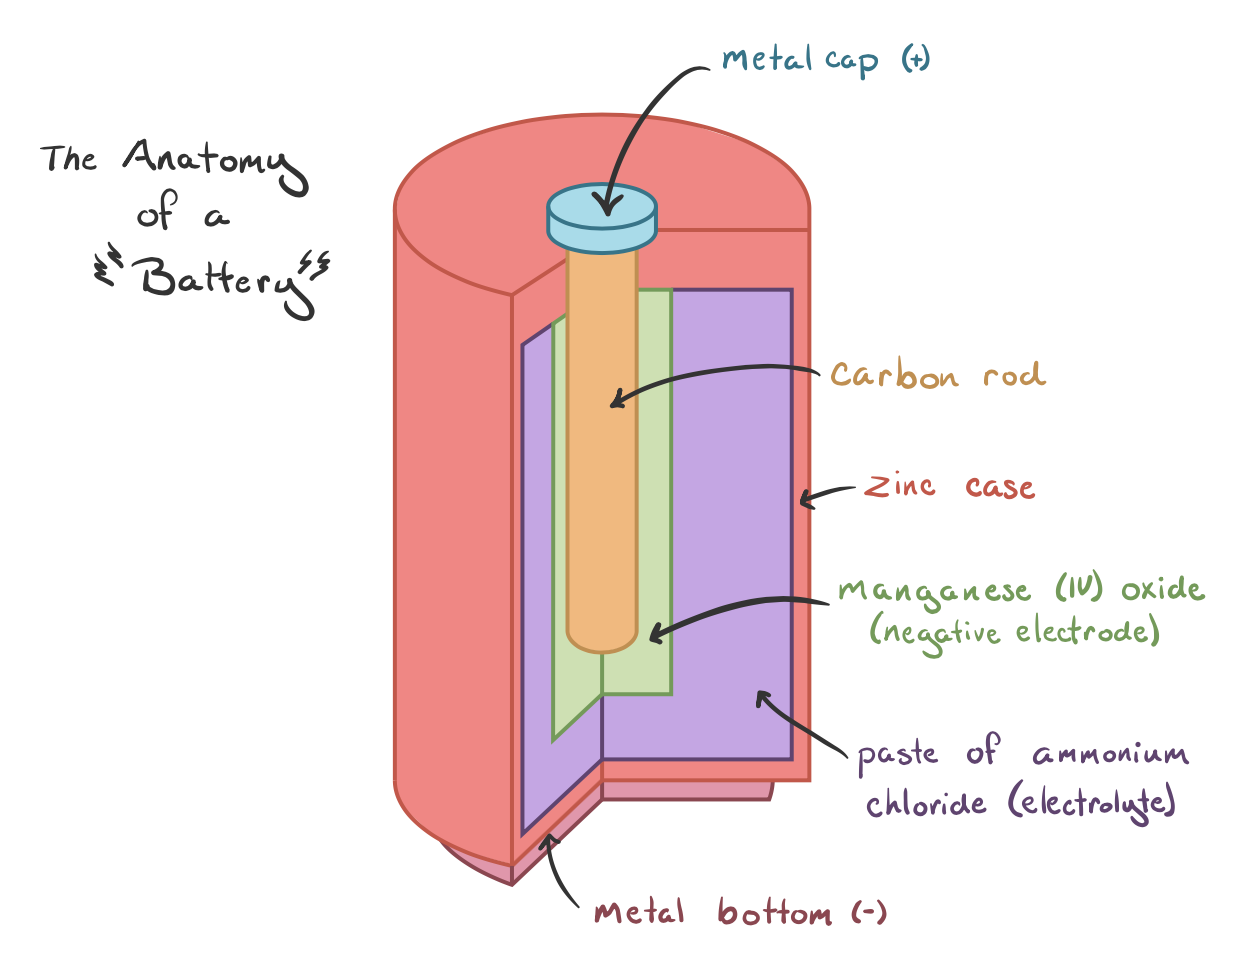 The Anatomy
of a
Battery
metal cap (+)
carbon rod
zinc case
manganese (IV) oxide
(negative electrode)
paste of ammonium
chloride (electrolyte)
metal bottom (-)